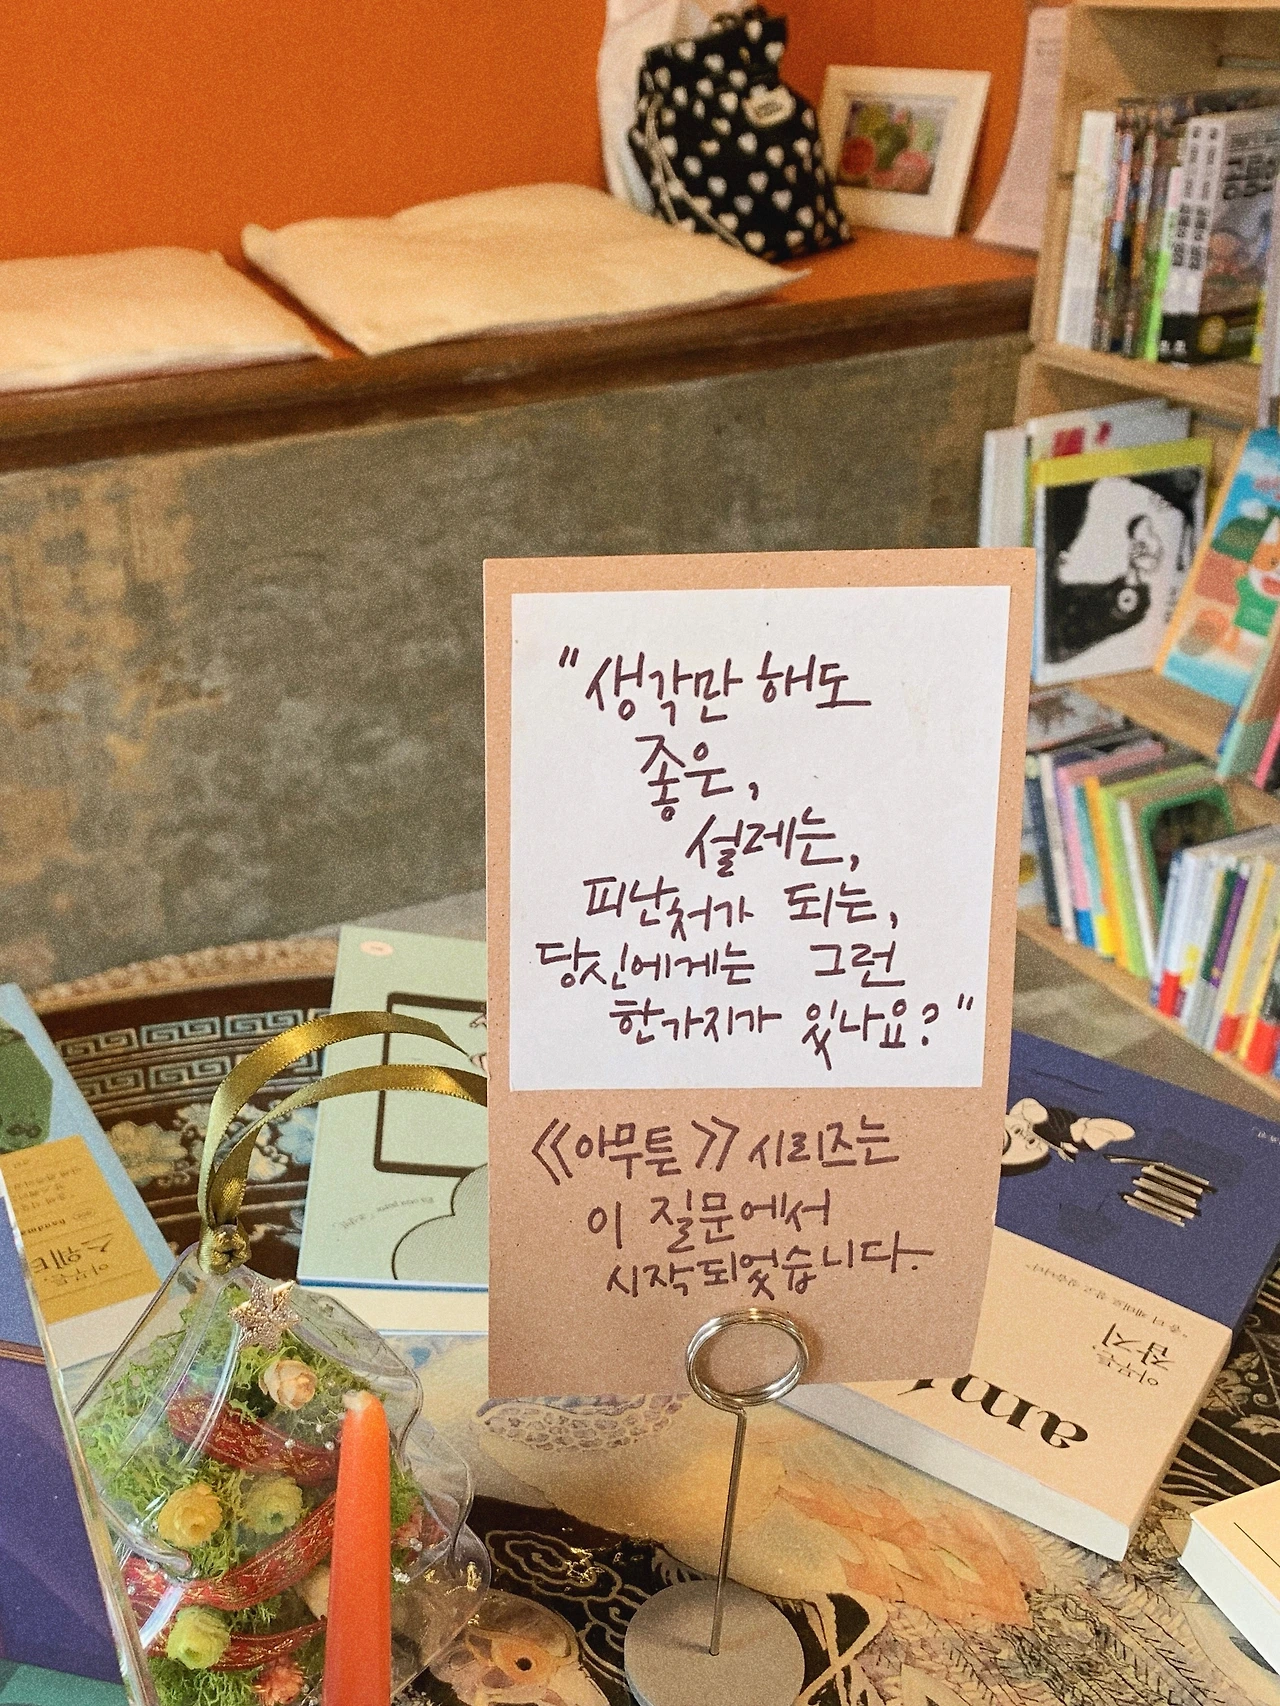 "생각만 해도
좋은,
설레는,
피난처가 되는,
당신에게는 그런
한가지가 있나요?"
《아무튼》 시리즈는
이 질문에서
시작되었습니다.
아무튼,
스웨터
아무튼,
잡지
amu